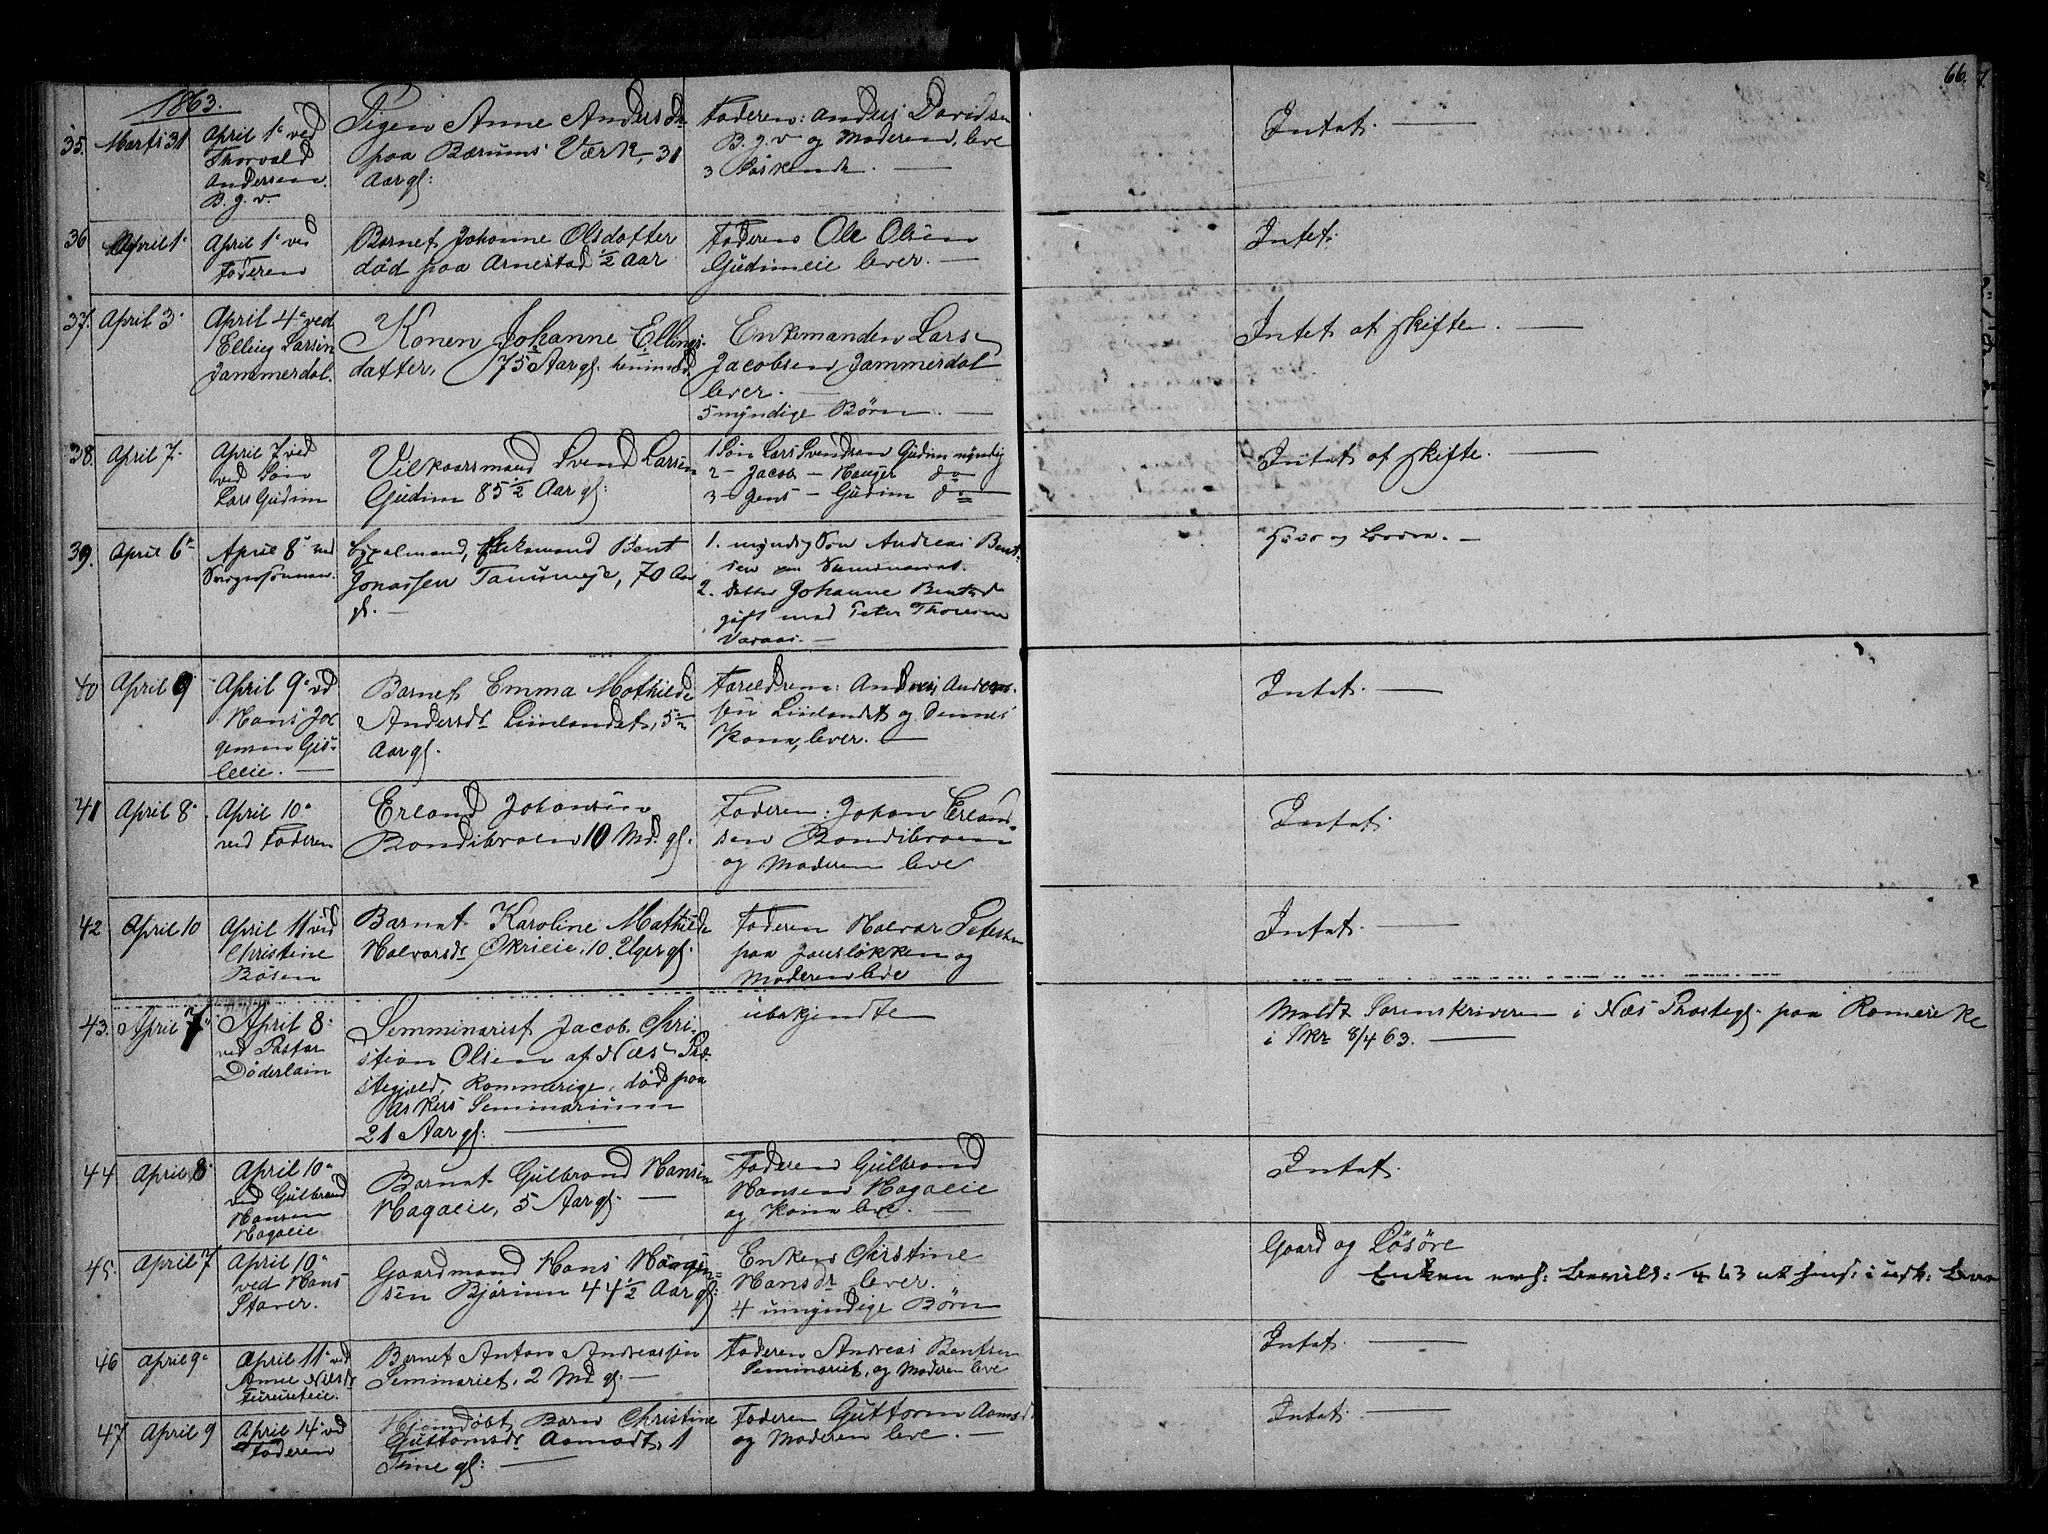 66.
1863.
35. Marts 31 April 1ste ved Thorvald Andersen B. g. v. Pigen Anne Andersdr paa Bærums Værk, 31 Aar gl: Faderen: Anders Davidsen B. g. v og Moderen, leve 3 Søskende. — Intet. —
36 April 1ste April 1ste ved Faderen Barnet Johanne Olsdatter død paa Arnestad 1/2 Aar Faderen Ole Olsen Gudimeie lever. — Intet.
37. April 3. April 4de ved Elling Larsen Jammerdal. Konen Johanne Ellingsdatter, 75 Aar gl. Enkemanden Lars Jacobsen Jammerdal lever. — 5 myndige Børn. — Intet at skifte. —
38. April 7. April 7 ved ved Søn Lars Gudim Vilkaarsmand Svend Larsen Gudim 85 1/2 Aar gl: 1 Søn Lars Svendsen Gudim myndig 2 — Jacob — Hauger do 3 — Jens — Gudim do Intet at skifte. —
39. April 6te April 8de ved Bent Jonassen 70 Aar gl. — 1. myndig Søn Andreas Bentsen Seminariet. 2. Datter Johanne Bentsd gift med Peter Thoresen Varaas. —
40 April 9 April 9de vd Hans Jørgensen Gisleeie. — Barnet Emma Mathilde Andersdr Liinlandet, 5 1/2 Aar gl. Foreldrene: Anders Anderssen Liinlandet og dennes Kone, lever. — Intet. —
41 April 8de April 10de ved Faderen Erland Johansen Bondibraaten 10 Md. gl. Faderen: Johan Erlandsen Bondibraaten og Moderen leve Intet.
42 April 10 April 11 ved Christine Bøsen Barnet Karoline Mathilde Halvorsdr Økrieie, 10 Uger gl. Faderen Halvor Petersen paa Jansløkken og Moderen leve Intet. —
43. April 7de April 8de ved Pastor Döderlain Semminarist Jacob Christian Olsen af Næs Præstegjeld, Rommerige, død paa Askers Seminarium 21 Aar gl: — ubekjendte Meldt Sorenskriveren i Næs Prstegl. paa Romerike i Skr 8/4 63. —
44 April 8de April 10de ved Gulbrand Hansen Hagaeie Barnet Gulbrand Hansen Hagaeie, 5 Aar gl. — Faderen Gulbrand Hansen Hagaeie og Kone leve. — Intet.
45. April 7 April 10de ved Hans Staver. Gaardmand Hans Hansen Bjørum 44 1/2 Aar gl: Enken Christine Hansdr lever. 4 umyndige Børn Gaard og Løsøre Enken
46 April 9de April 11te ved Anne Nilsdr Barnet Anton Andreassen Seminariet, 2 Md gl: — Faderen Andreas Bentsen Seminariet, og Moderen leve Intet. —
47 April 9 April 14 ved Faderen Hjemdøbt Barn Christine Guttormsdr Aamodt, 1 Time gl: — Faderen Guttorm Aamodt og Moderen leve. — Intet. —